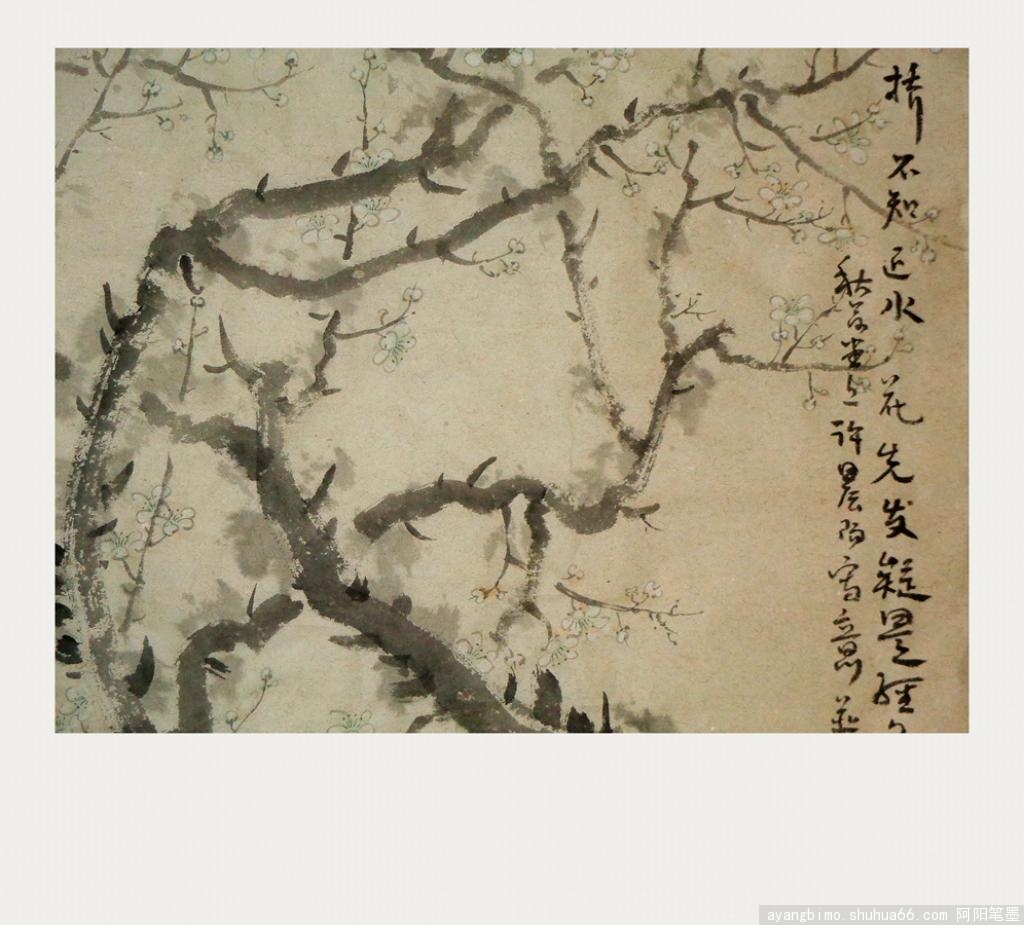 桥不知近水花先发疑是经
秋堂上许晨阳写意
ayangbimo.shuhua66.com 阿阳笔墨